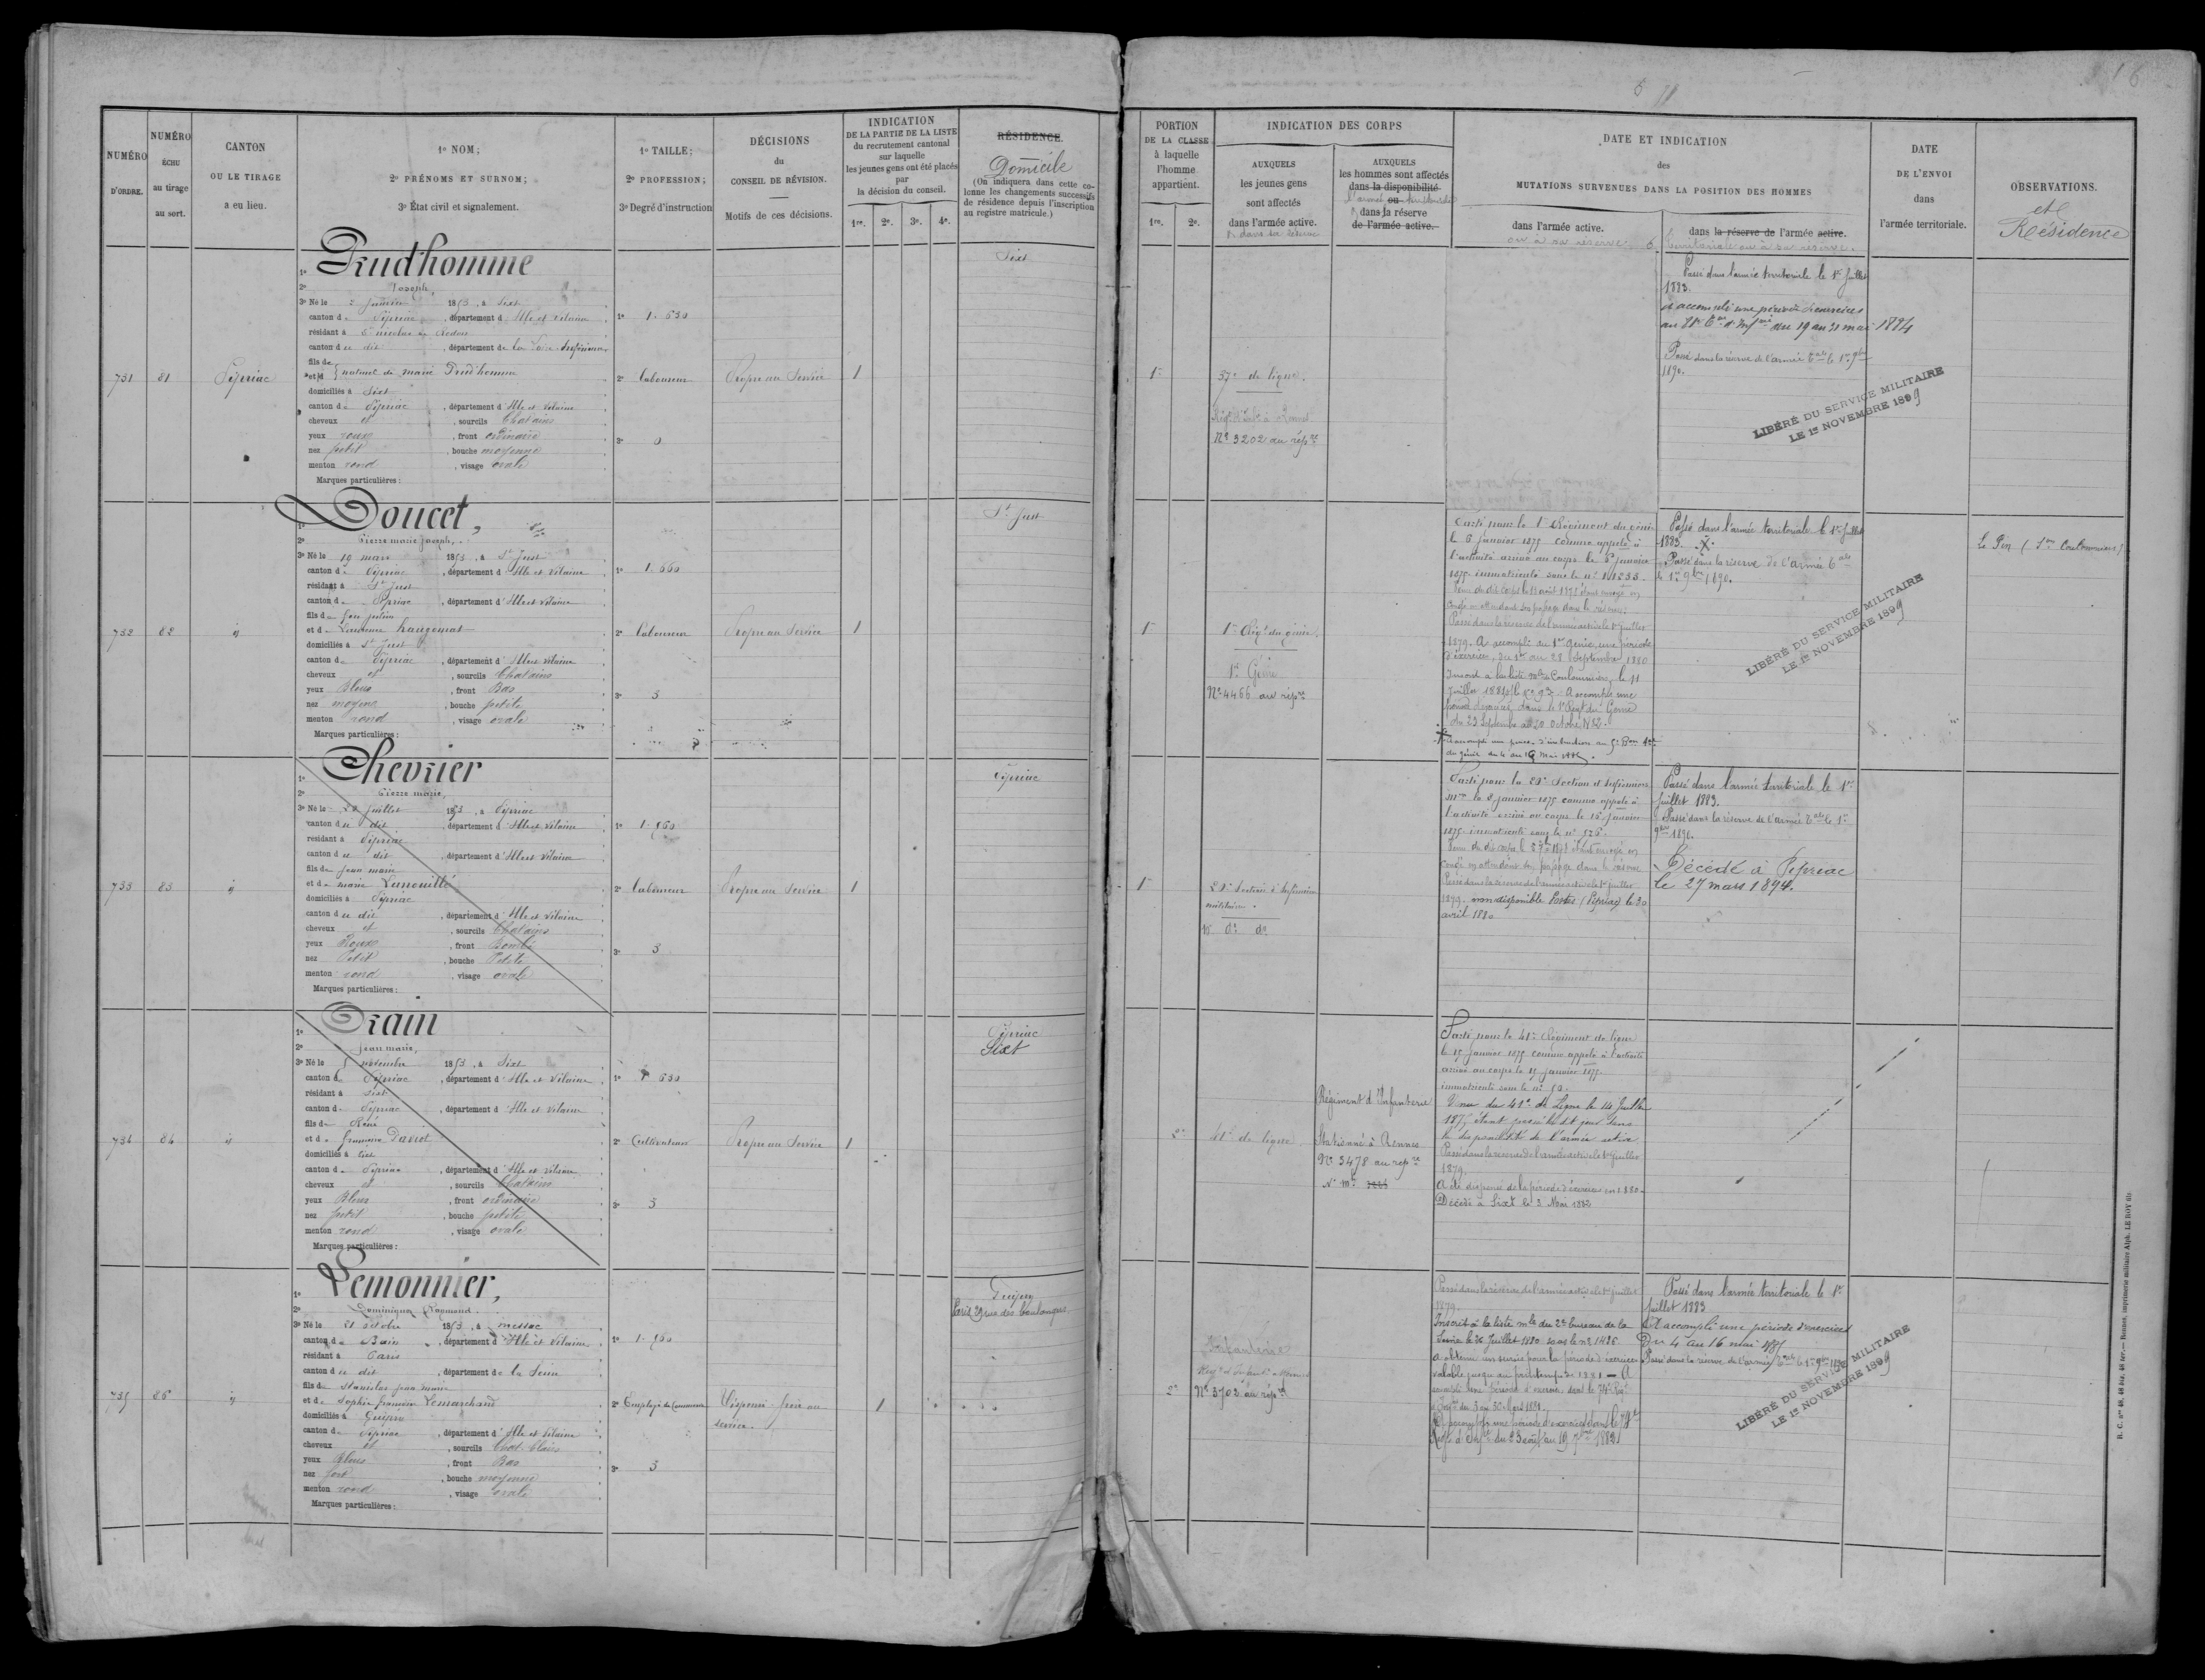 NUMÉRO D'ORDRE.
NUMÉRO ÉCHU au tirage au sort.
CANTON OU LE TIRAGE a eu lieu.
1º NOM;
2º PRÉNOMS ET SURNOM;
3º État civil et signalement.
1º TAILLE;
2º PROFESSION;
3º Degré d'instruction
DÉCISIONS du CONSEIL DE RÉVISION.
Motifs de ces décisions.
INDICATION
DE LA PARTIE DE LA LISTE
du recrutement cantonal
sur laquelle
les jeunes gens ont été placés
par
la décision du conseil.
1re. 2e. 3e. 4e.
RÉSIDENCE.
Domicile
(On indiquera dans cette colonne les changements successifs de résidence depuis l'inscription au registre matricule.)
PORTION
DE LA CLASSE
à laquelle
l'homme
appartient.
1re. 2e.
INDICATION DES CORPS
AUXQUELS
les jeunes gens
sont affectés
dans l'armée active.
& dans sa réserve
AUXQUELS
les hommes sont affectés
dans la disponibilité
l'armée ou territoriale
& dans la réserve
de l'armée active.
DATE ET INDICATION
des
MUTATIONS SURVENUES DANS LA POSITION DES HOMMES
dans l'armée active.
ou à sa réserve
dans la réserve de l'armée active.
territoriale ou à sa réserve.
DATE
DE L'ENVOI
dans
l'armée territoriale.
OBSERVATIONS.
et
Résidence
731
81
Pipriac
1º Prud'homme
2º Joseph,
3º Né le 2 janvier 1853, à Sixt
canton de Pipriac, département d'Ille et Vilaine
résidant à St nicolas de Redon
canton du dit, département de la Loire Inférieure
fils de
et d naturel de marie Prud'homme
domiciliés à Sixt
canton de Pipriac, département d'Ille et Vilaine
cheveux et, sourcils Chatains
yeux roux, front ordinaire
nez petit, bouche moyenne
menton rond, visage ovale
Marques particulières:
1º 1.630
2º laboureur
3º 0
Propre au Service
1
Sixt
1re
37e de ligne.
Régt d'Infie à Rennes
Nº 3202 au répre
Passé dans l'armée territoriale le 1er Juillet
1883.
a accompli une période d'exercices
du 19 au 31 mai 1884
Passé dans la réserve de l'armée tale le 1er 9bre
1890.
LIBÉRÉ DU SERVICE MILITAIRE
LE 1er NOVEMBRE 1899
732
82
id
1º Doucet,
2º Pierre marie Joseph,
3º Né le 19 mars 1853, à St Just
canton de Pipriac, département d'Ille et Vilaine
résidant à St Just
canton de Pipriac, département d'Ille et Vilaine
fils de feu julien
et de Laurence hangouet
domiciliés à St Just
canton de Pipriac, département d'Ille et Vilaine
cheveux et, sourcils Chatains
yeux Bleus, front Bas
nez moyen, bouche petite
menton rond, visage ovale
Marques particulières:
1º 1.660
2º laboureur
3º 3
Propre au Service
1
St Just
1re
1er Régt du génie.
1er Génie
Nº 4466 au répre
Parti pour le 1er Régiment du génie
le 6 Janvier 1875 comme appelé à
l'activité arrivé au corps le 8 Janvier
1875 immatriculé sous le nº
Passé dans la réserve de l'armée active le 1er juillet
1879. A accompli au 1er Génie, une période
d'exercices, du 1er au 28 Septembre 1880
Inscrit à la liste mle de Coulommiers, le 11
Juillet 1881 A accompli une
période d'exercices dans le 1er Régt du Génie
du 23 Septembre au 20 Octobre 1882.
Passé dans l'armée territoriale le 1er Juillet
1883.
Passé dans la réserve de l'armée tale
le 1er 9bre 1890.
LIBÉRÉ DU SERVICE MILITAIRE
LE 1er NOVEMBRE 1899
Le Pin
733
83
id
1º Chevrier
2º Pierre marie,
3º Né le 28 juillet 1853, à Pipriac
canton du dit, département d'Ille et Vilaine
résidant à Pipriac
canton du dit, département d'Ille et Vilaine
fils de Jean marie
et de marie Lanouillé
domiciliés à Pipriac
canton du dit, département d'Ille et Vilaine
cheveux et, sourcils Chatains
yeux Roux, front Bombé
nez Petit, bouche Petite
menton rond, visage ovale
Marques particulières:
1º 1.560
2º laboureur
3º 3
Propre au Service
1
Pipriac
1re
20e Section d'Infirmiers
militaires.
do do
Parti pour la 20e Section d'Infirmiers
mres le 8 janvier 1875 comme appelé à
l'activité arrivé au corps le 15 Janvier
1875 immatriculé sous le nº 576.
étant envoyé en
congé en attendant son passage dans la réserve
Passé dans la réserve de l'armée active le 1er juillet
1879. non disponible Postes (Pipriac) le 30
avril 1880
Passé dans l'armée territoriale le 1er
juillet 1883.
Passé dans la réserve de l'armée tale le 1er
9bre 1890.
Décédé à Pipriac
le 27 mars 1894.
734
84
id
1º Orain
2º Jean marie,
3º Né le 5 novembre 1853, à Sixt
canton de Pipriac, département d'Ille et Vilaine
résidant à Sixt
canton de Pipriac, département d'Ille et Vilaine
fils de René
et de françoise Daviot
domiciliés à Sixt
canton de Pipriac, département d'Ille et Vilaine
cheveux et, sourcils Chatains
yeux Bleus, front ordinaire
nez petit, bouche petite
menton rond, visage ovale
Marques particulières:
1º 1.630
2º Cultivateur
3º 3
Propre au Service
1
Pipriac
Sixt
2e
41e de ligne
Régiment d'Infanterie
Stationné à Rennes
Nº 3478 au répre
Parti pour le 41e Régiment de ligne
le 15 Janvier 1875 comme appelé à l'activité
arrivé au corps le 15 Janvier 1875
immatriculé sous le nº 50.
Venu du 41e de Ligne le 14 Juillet
1875, étant passé le dit jour dans
la disponibilité de l'armée active
Passé dans la réserve de l'armée active le 1er juillet
1879.
A été dispensé de la période d'exercices en 1880.
Décédé à Sixt le 3 Mai 1882
735
86
id
1º Lemonnier,
2º Dominique Raymond.
3º Né le 21 octobre 1853, à messac
canton de Bain, département d'Ille et Vilaine
résidant à Paris
canton du dit, département de la Seine
fils de Stanislas jean marie
et de Sophie françoise Lemarchand
domiciliés à Guipry
canton de Pipriac, département d'Ille et Vilaine
cheveux et, sourcils Chat. Clairs
yeux Bleus, front Bas
nez fort, bouche moyenne
menton rond, visage ovale
Marques particulières:
1º 1.560
2º Employé de Commerce
3º 3
Dispensé frère au
service.
1
Guipry
Paris 29 rue des boulangers
2e
Infanterie
Nº 3702 au répre
Passé dans la réserve de l'armée active le 1er juillet
1879.
Inscrit à la liste mle du 2e bureau de la
Seine le 26 Juillet 1880 sous le nº 1486
A obtenu un sursis pour la période d'exercices
valable jusqu'au printemps de 1881 — A
accompli une période d'exercices dans le 74e Régt
d'Infie du 3 au 30 Mars 1881.
A accompli une période d'exercices dans le
Régt d'Infie du 23 août au 19 7bre 1882
Passé dans l'armée territoriale le 1er
juillet 1883
A accompli une période d'exercices
Du 4 au 16 mai 1885
Passé dans la réserve de l'armée tale le 1er 9bre 1890
LIBÉRÉ DU SERVICE MILITAIRE
LE 1er NOVEMBRE 1899
R. C. nos 48, 48 bis, 48 ter. — Rennes, imprimerie militaire Alph. LE ROY fils